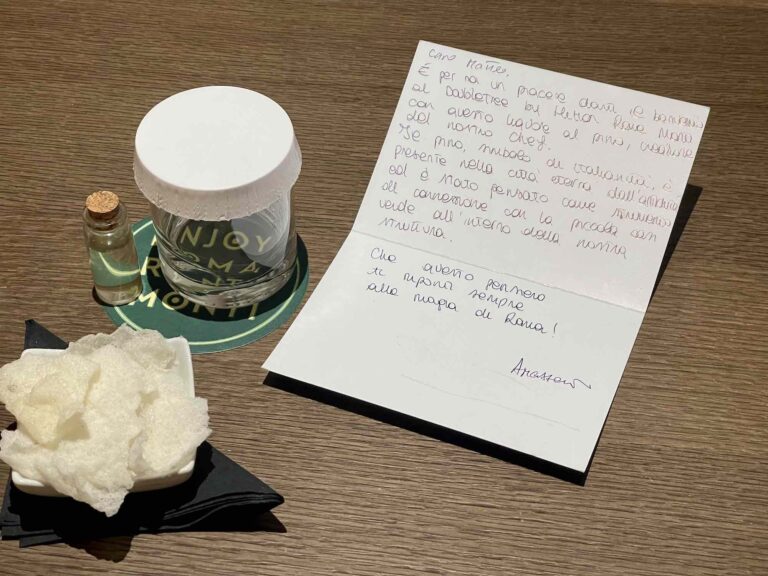 ENJOY
ROMA
MONTI
Caro Matteo,
È per noi un piacere darti il benvenuto
al Doubletree by Hilton Rome Monti
con questo liquore al pino, creazione
del nostro chef.
Il pino, simbolo di italianità, è
presente nella città eterna dall'antichità
ed è stato pensato come
di connessione con la piccola oasi
verde all'interno della nostra
struttura.
Che questo pensiero
ti riporti sempre
alla magia di Roma!